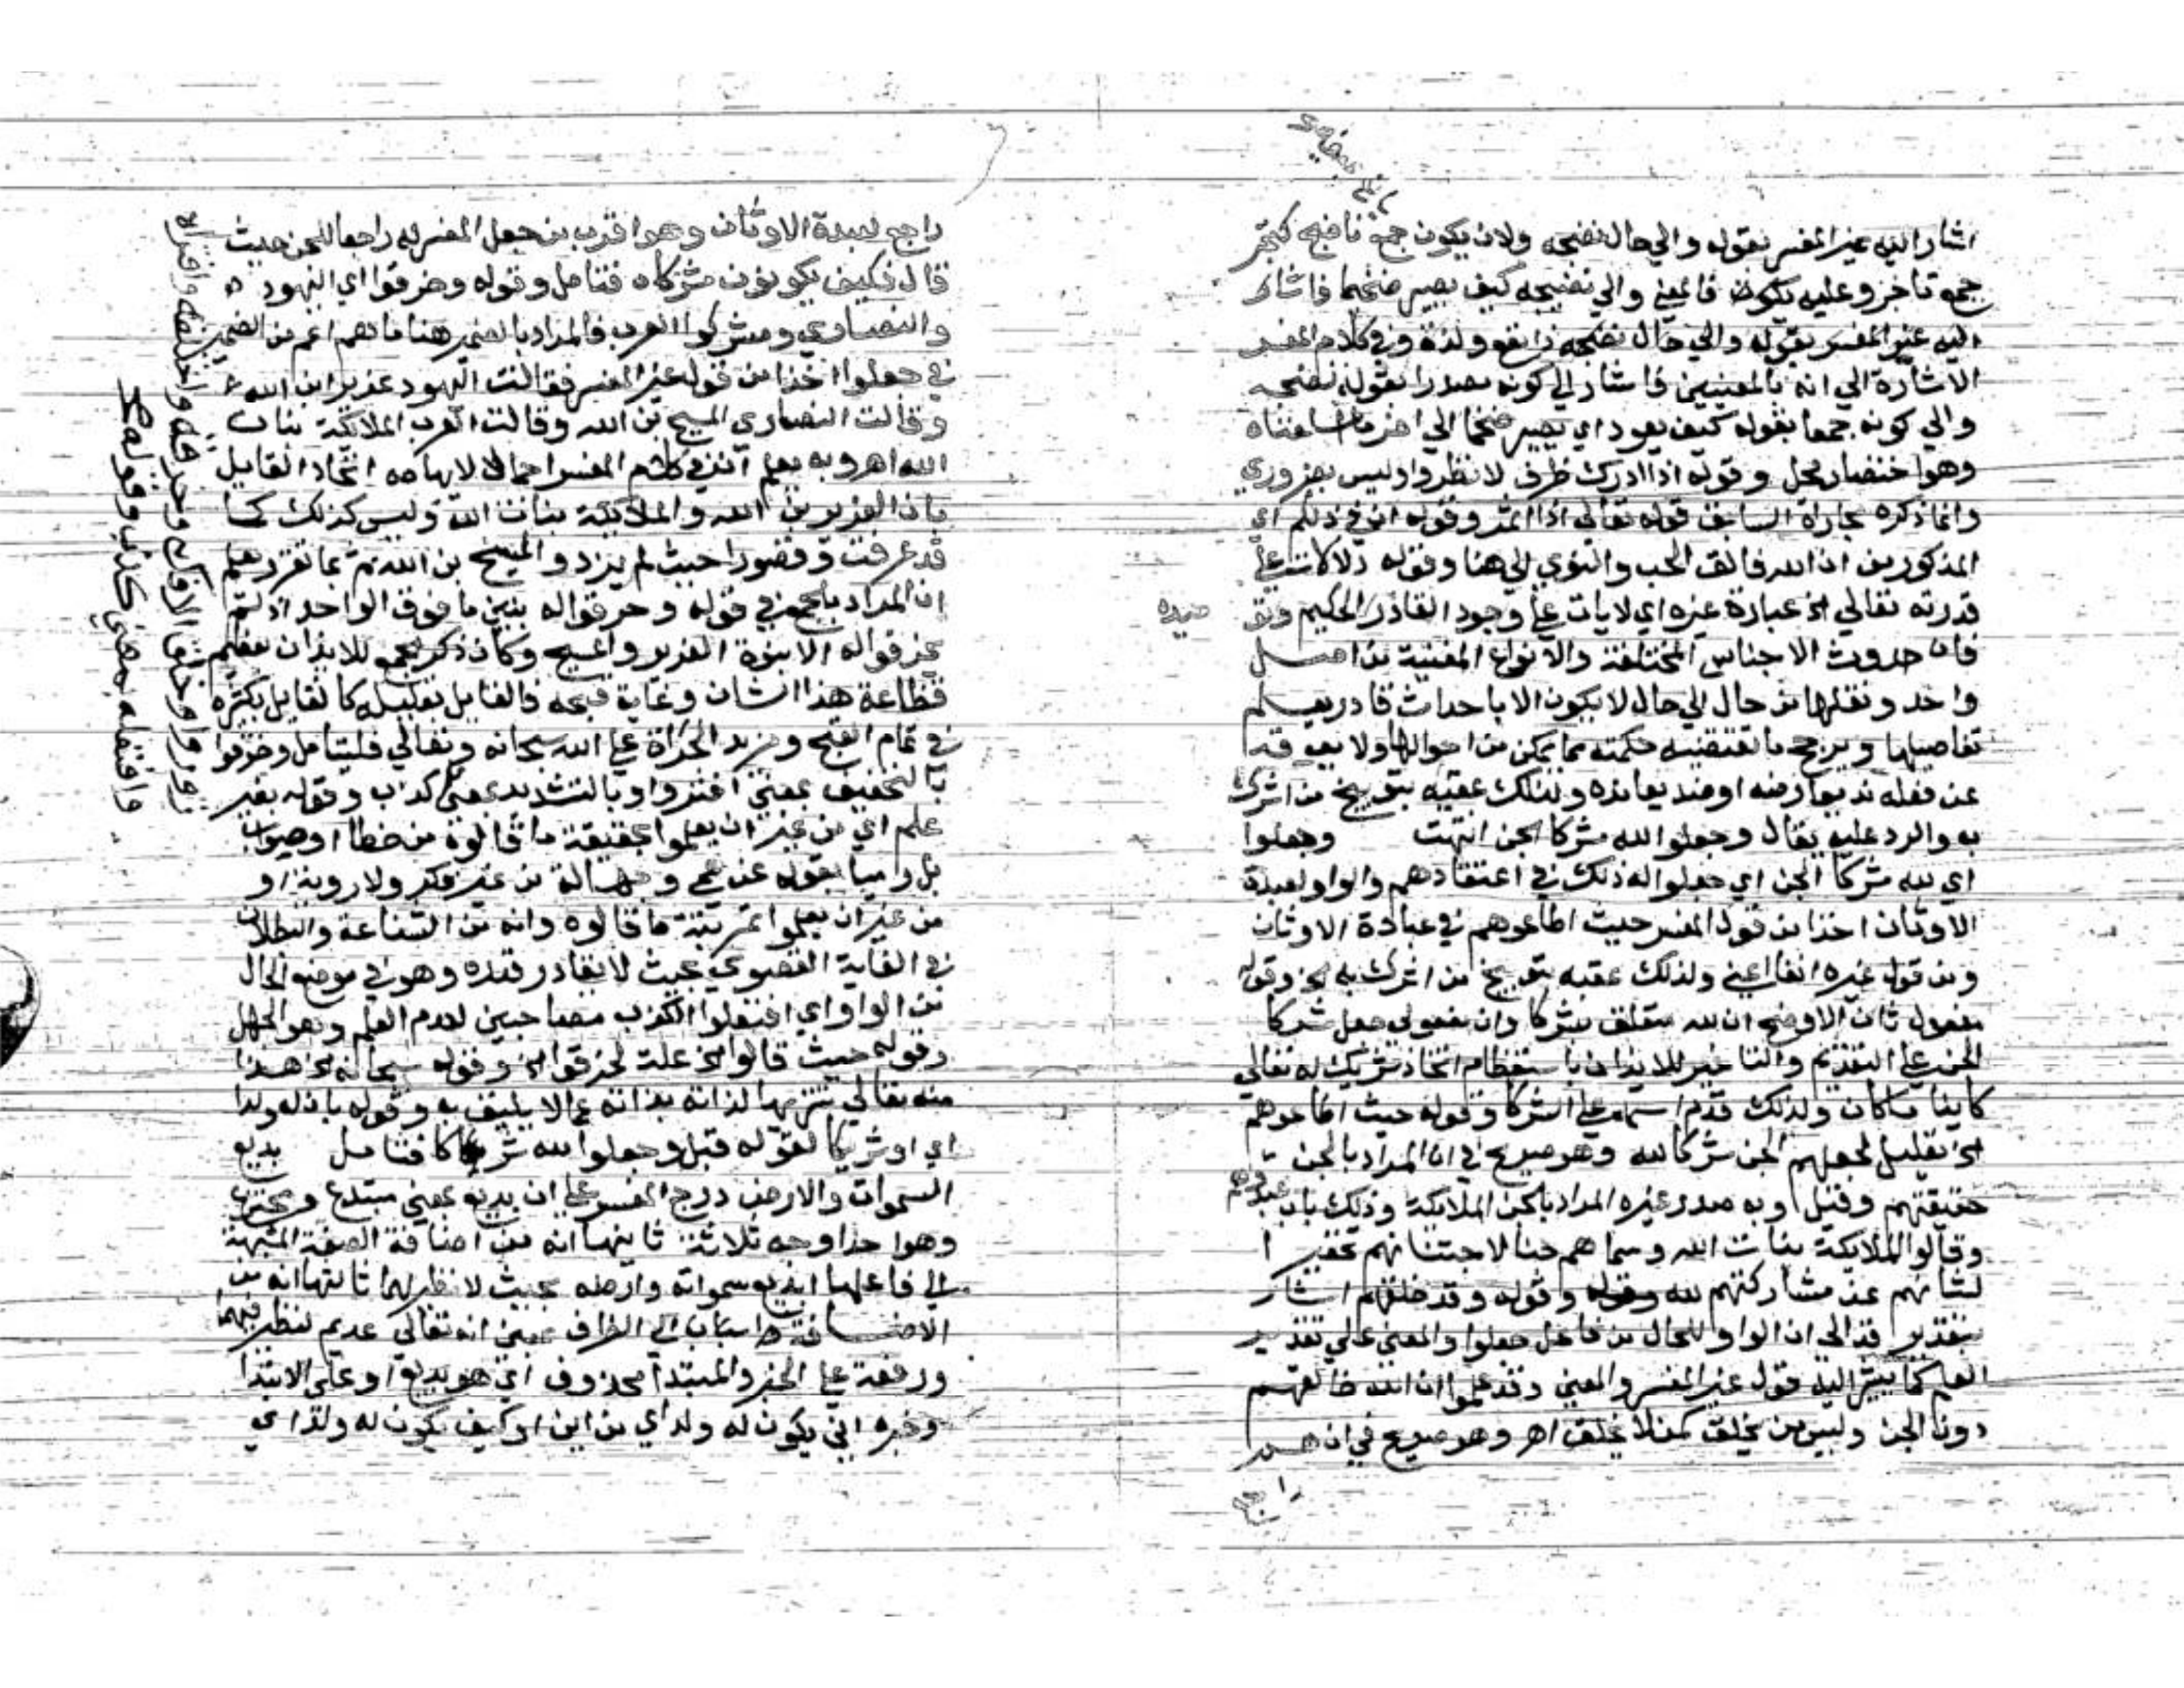 اشار اليه غير المفسر بقوله والي حال نضجه ولان يكون جمع ناضج كتجر
جمع تاجر وعليه يكون فالمعني والي نضيجه كيف يصير ضخما فاشار
اليه غير المفسر بقوله والي حال نضجه ذا نفع ولذة وفي كلام المفسر
الاشارة الي انه بالمعنيين فاشار الي كونه مصدرا بقوله نضجه
والي كونه جمعا بقوله كيف يعود اي يصير ضخما الي اخر ما اسلفناه
وهو اختصار مخل وقوله اذا ادرك ظرف لانظروا وليس بضروري
وانما ذكره مجاراة السابق قوله تعالي اذا اثمر وقوله ان في ذلكم اي
المذكور من ان الله فالق الحب والنوي الي هنا وقوله دلالات علي
قدرته تعالي الخ عبارة غيره اي لايات علي وجود القادر الحكيم وتو
حيده
فان حدوث الاجناس المختلفة والانواع المفننة من اصل
واحد ونقلها من حال الي حال لا يكون الا باحداث قادر يعلم
تفاصيلها ويرجح ما تقتضيه حكمته مما يمكن من احوالها ولا يعوقه
عن فعله ند يعارضه او ضد يعانده ولذلك عقبه بتوبيخ من اشرك
به والرد عليه فقال وجعلوا لله شركا الجن انتهت وجعلوا
اي لله شركا الجن اي جعلوا له ذلك في اعتقادهم والواو لعبدة
الاوثان اخذا من قول المفسر حيث اطاعوهم في عبادة الاوثان
ومن قول غيره انفا اعني ولذلك عقبه بتوبيخ من اشرك به الخ وقوله
مفعول ثان الاوضح ان لله متعلق بشركا وان مفعولي جعل شركا
الجن علي التقديم والتاخير للايذان باستعظام اتخاذ شريك له تعالي
كاينا ماكان ولذلك قدم اسمه علي الشركا وقوله حيث اطاعوهم
الخ تعليل لجعلهم الجن شركا لله وهو صريح في ان المراد بالجن
حقيقتهم وقيل وبه صدر غيره المراد بالجن الملايكة وذلك بان عبدوهم
وقالوا الملايكة بنات الله وسماهم جنا لاجتنانهم تحقيرا
لشانهم عن مشاركتهم لله وقوله وقد خلقهم اشار
بتقدير قد الي ان الواو للحال من فاعل جعلوا والمعني علي تقدير
العلم كما يشير اليه قول غير المفسر والمعني وقد علموا ان الله خالقهم
دون الجن وليس من يخلق كمن لا يخلق اهر وهو صريح في ان
راجع
راجع لعبدة الاوثان وهو اقرب من جعل المفسر له راجعا للجن حيث
قال فكيف يكونون شركاه فتامل وقوله وخرقوا اي اليهود
والنصاري ومشركوا العرب فالمراد بالضمير هنا ما هم اعم من الضمير
في جعلوا اخذا من قول غير المفسر فقالت اليهود عزير ابن الله
وقالت النصاري المسيح بن الله وقالت العرب الملائكة بنات
الله اهر وبه يعلم ان في كلام المفسر اجمالا لايهامه اتحاد القايل
بان العزير بن الله والملائكة بنات الله وليس كذلك كما
قد عرفت وقصورا حيث لم يزد والمسيح بن الله ثم بما تقرر علم
ان المراد بالجمع في قوله وخرقوا له بنين ما فوق الواحد اذ لم
يخرقوا له الا بنوة العزير والمسيح وكان ذكر الجمع للايذان بعظم
فظاعة هذا الشان وغاية قبحه فالقايل بقليله كالقايل بكثيره
في تمام القبح ومزيد الجراة علي الله سبحانه وتعالي فليتامل وخرقوا
بالتخفيف بمعني افتروا وبالتشديد بمعني كذب وقوله بغير
علم اي من غير ان يعلموا حقيقة ما قالوه من خطا او صواب
بل راميا بقوله عن عمي وجهالة من غير فكر ولا روية او
من غير ان يعلموا مرتبة ما قالوه وانه من الشناعة والبطلان
في الغاية القصوي بحيث لا يقادر قدره وهو في موضع الحال
من الواو اي افتعلوا الكذب مصاحبين لعدم العلم وهو الجهل
وقوله حيث قالوا الخ علة لخرقوا الخ وقوله سبحانه الخ هذا
منه تعالي تنزيها لذاته بذاته عما لا يليق به وقوله بان له ولدا
اي او شريكا لقوله قبل وجعلوا لله شركا فتامل بديع
السموات والارض درج المفسر علي ان بديع بمعني مبتدع ومخترع
وهو احد اوجه ثلاثة ثانيها انه من اضافة الصفة المشبهة
الي فاعلها اي بديع سمواته وارضه بحيث لا نظير لهما ثالثها انه من
الاضافة الي الظرف بمعني انه تعالي عديم النظير فيهما
ورفعه علي الخبر والمبتدا محذوف اي هو بديع او علي الابتدا
وخبره اني يكون له ولد اي من اين او كيف يكون له ولد اي